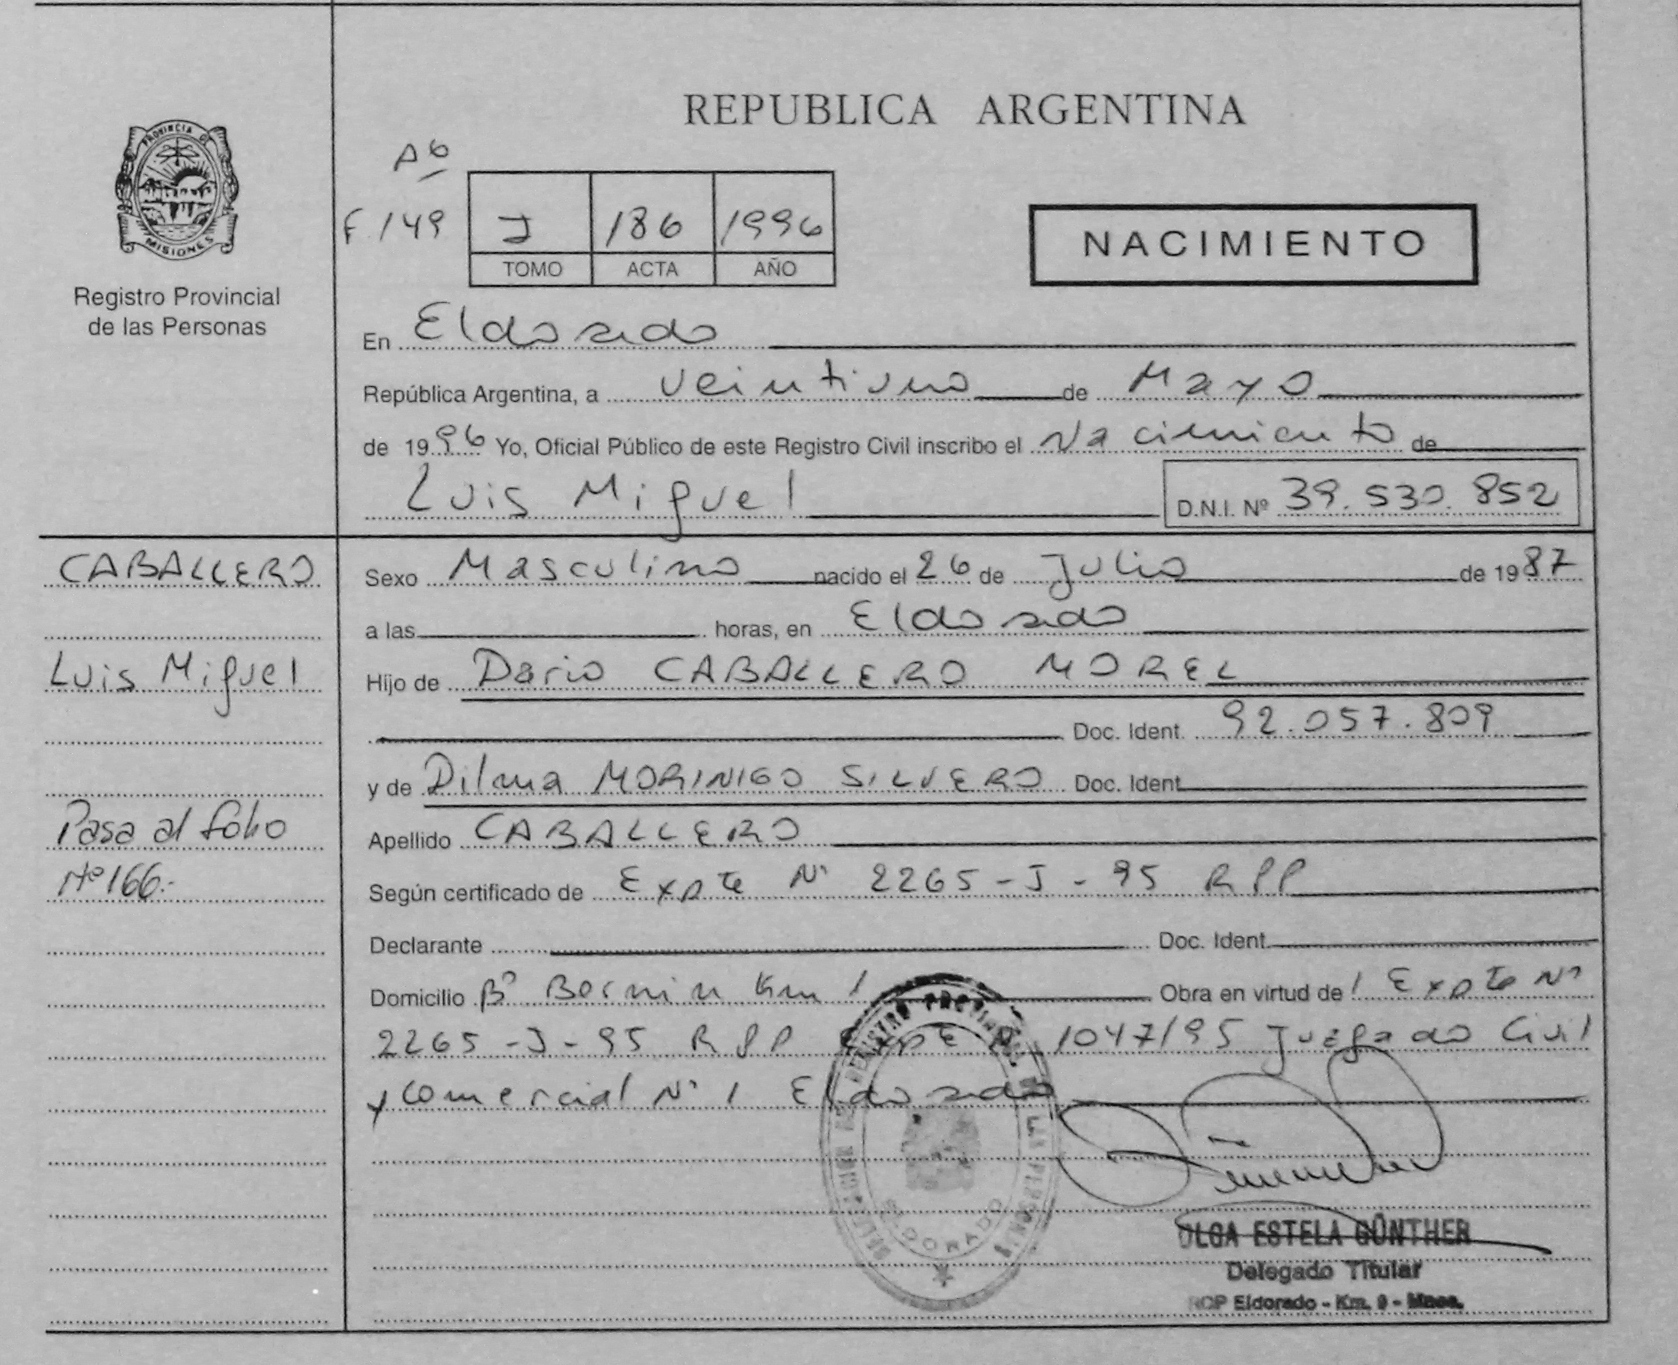 REPUBLICA ARGENTINA
PROVINCIA DE
MISIONES
Registro Provincial
de las Personas
Aº
F. 149
J 186 1996
TOMO ACTA AÑO
NACIMIENTO
En Eldorado
República Argentina, a veintiuno de Mayo
de 1996 Yo, Oficial Público de este Registro Civil inscribo el Nacimiento de
Luis Miguel D.N.I. Nº 39.530.852
CABALLERO
Luis Miguel
Pasa al folio
Nº 166.-
Sexo Masculino nacido el 26 de Julio de 1987
a las horas, en Eldorado
Hijo de Dario CABALLERO MOREL
Doc. Ident. 92.057.809
y de Dilma MORINIGO SILVERO Doc. Ident.
Apellido CABALLERO
Según certificado de Expte Nº 2265-J-95 RPP
Declarante Doc. Ident.
Domicilio Bº Bernin Km 1 Obra en virtud de 1 Expte Nº
2265-J-95 RPP Expte Nº 1047/95 Juzgado Civil
y Comercial Nº 1 Eldorado
ELDORADO
OLGA ESTELA GÜNTHER
Delegado Titular
RCP Eldorado - Km. 9 - Mnes.